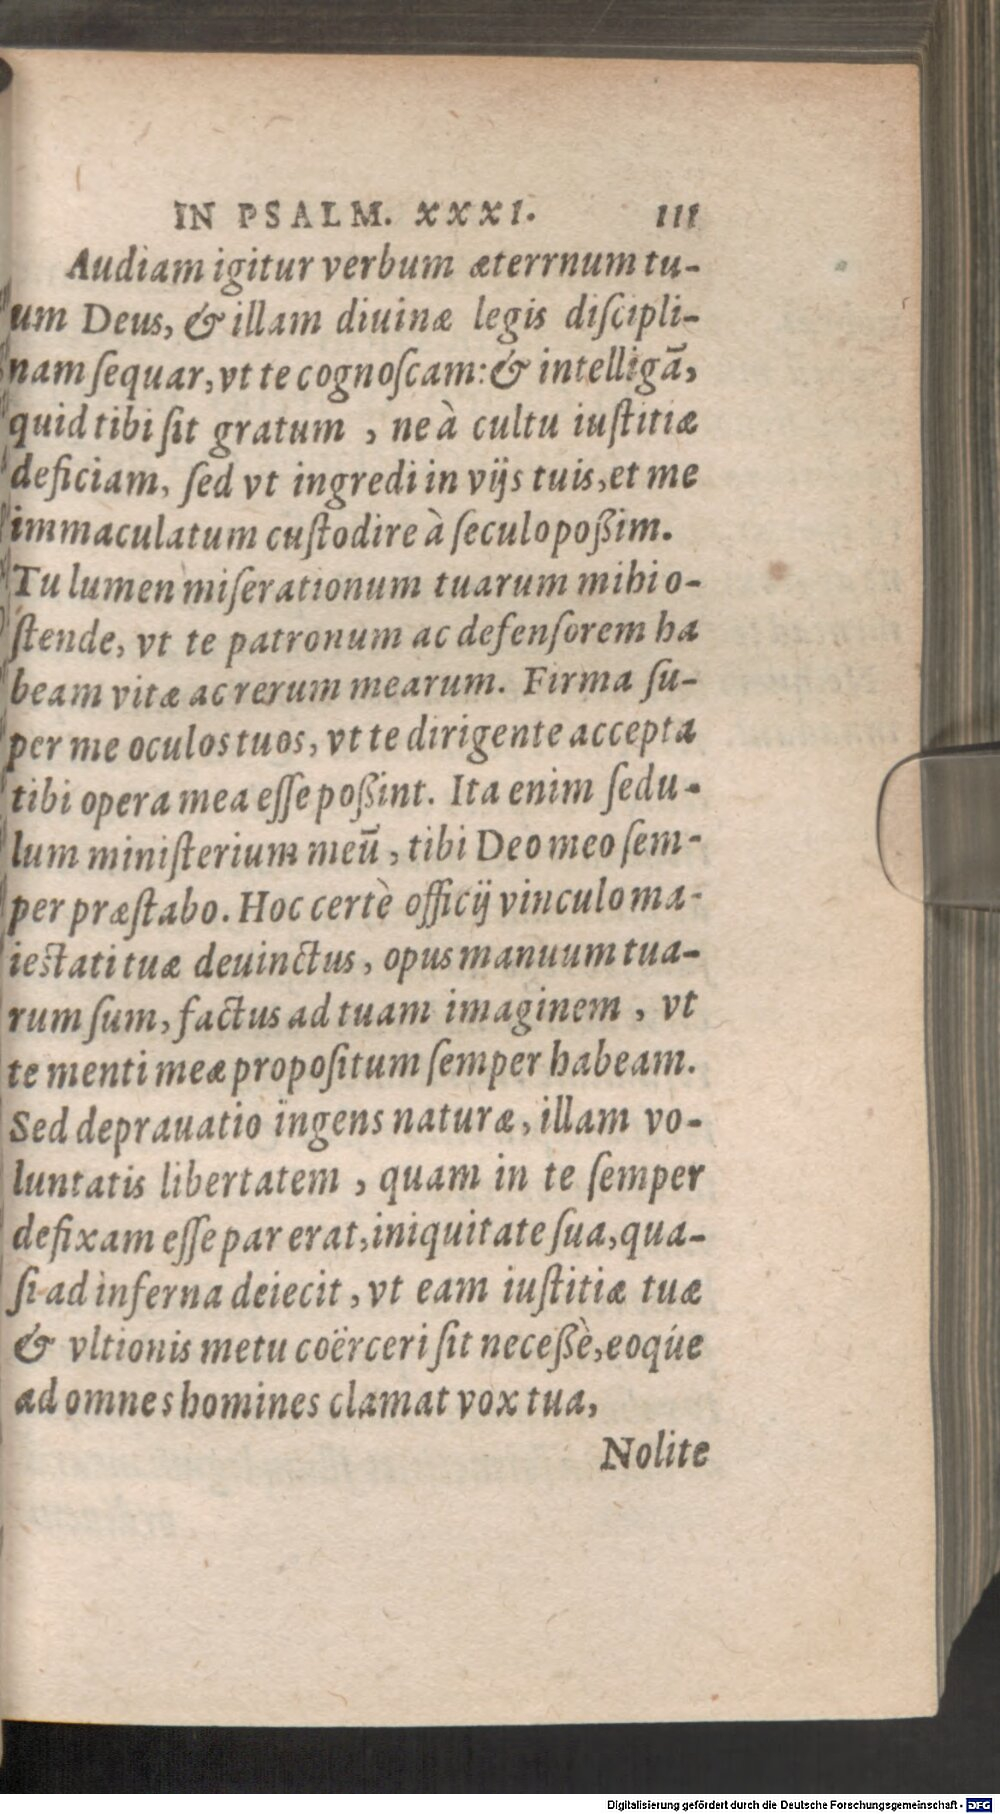 IN PSALM. XXXI. 111
Audiam igitur verbum æterrnum tu-
um Deus, & illam diuinæ legis diſcipli-
nam ſequar, vt te cognoſcam: & intelligā,
quid tibi ſit gratum , ne à cultu iuſtitiæ
deficiam, ſed vt ingredi in vijs tuis, et me
immaculatum cuſtodire à ſeculo poßim.
Tu lumen miſerationum tuarum mihi o-
ſtende, vt te patronum ac defenſorem ha
beam vitæ ac rerum mearum. Firma ſu-
per me oculos tuos, vt te dirigente accepta
tibi opera mea eſſe poßint. Ita enim ſedu-
lum miniſterium meū , tibi Deo meo ſem-
per præſtabo. Hoc certè officij vinculo ma-
ieſtati tuæ deuinctus , opus manuum tua-
rum ſum, factus ad tuam imaginem , vt
te menti meæ propoſitum ſemper habeam.
Sed deprauatio ingens naturæ, illam vo-
luntatis libertatem , quam in te ſemper
defixam eſſe par erat, iniquitate ſua, qua-
ſi ad inferna deiecit , vt eam iuſtitiæ tuæ
& vltionis metu coërceri ſit neceßè, eoq́ue
ad omnes homines clamat vox tua,
Nolite
Digitalisierung gefördert durch die Deutsche Forschungsgemeinschaft - DFG